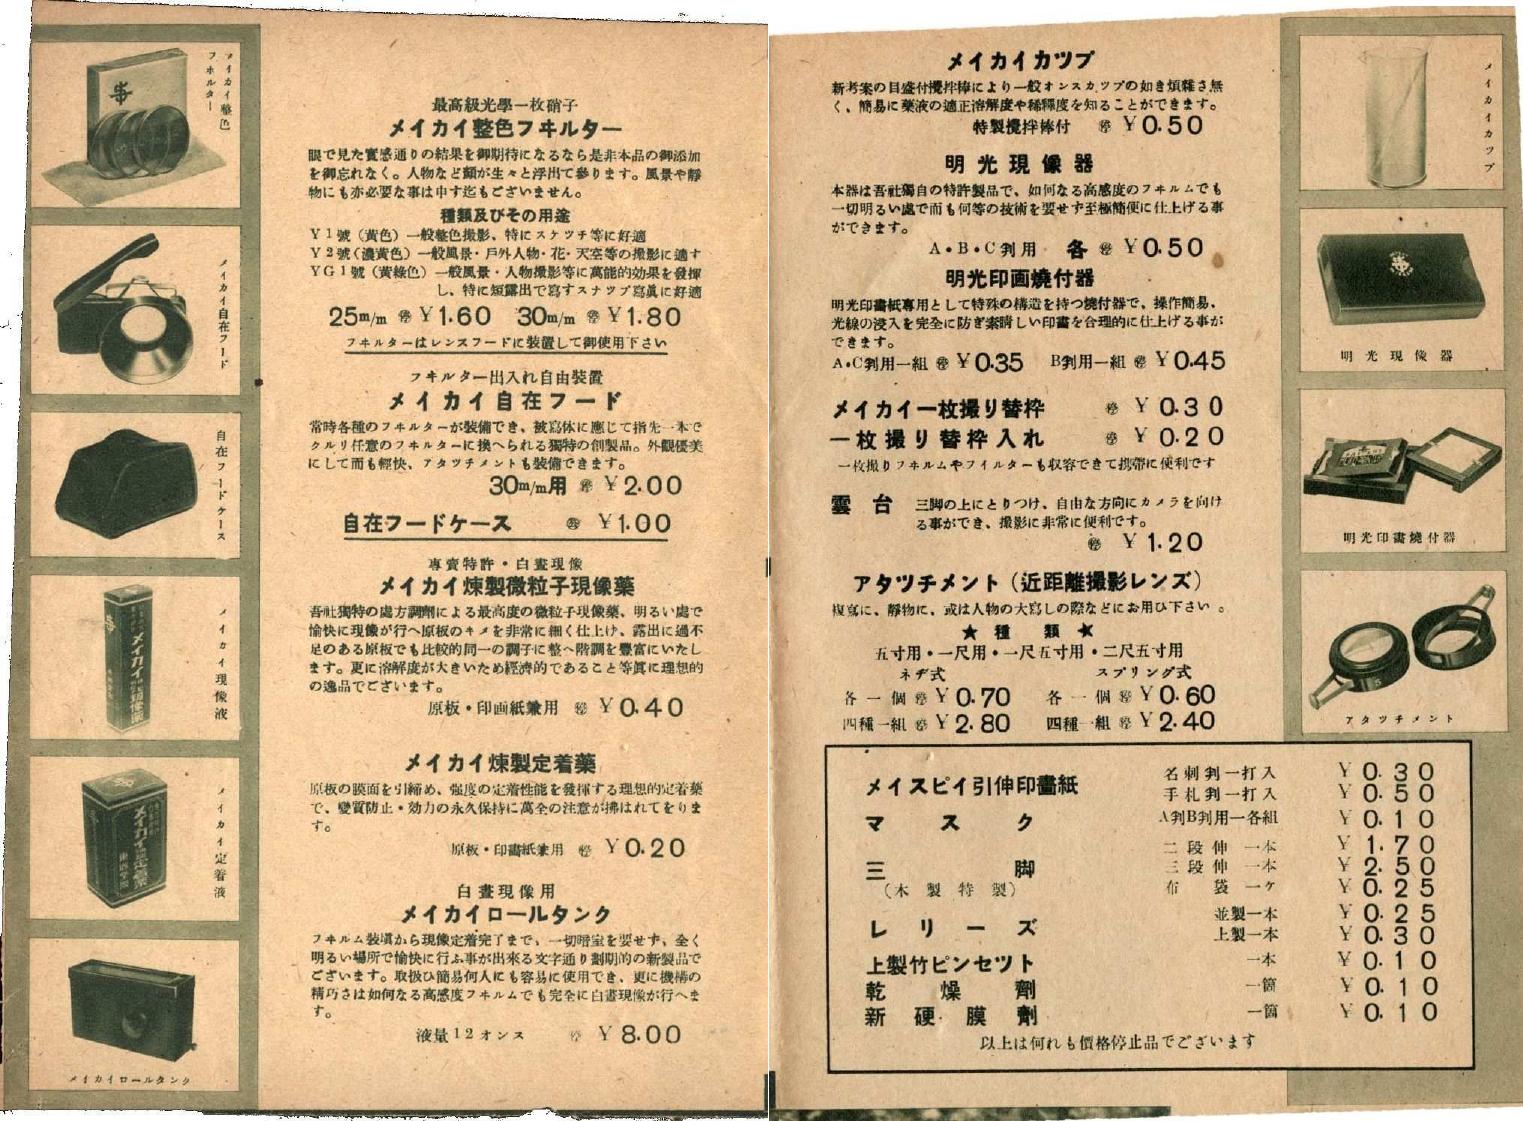 メイカイ整色
フヰルター
メイカイ自在フード
自在フードケース
メイカイ現像液
メイカイ定着液
メイカイロールタンク
最高級光學一枚硝子
メイカイ整色フヰルター
眼で見た實感通りの結果を御期待になるなら是非本品の御添加
を御忘れなく。人物など顏が生々と浮出て參ります。風景や靜
物にも亦必要な事は申す迄もございません。
種類及びその用途
Y1號(黃色)一般整色撮影、特にスケツチ等に好適
Y2號(濃黃色)一般風景・戶外人物・花・天空等の撮影に適す
YG1號(黃綠色)一般風景・人物撮影等に萬能的効果を發揮
し、特に短露出で寫すスナツプ寫眞に好適
25m/m ㊕ ¥1.60 30m/m ㊕ ¥1.80
フヰルターはレンスフードに装置して御使用下さい
フヰルター出入れ自由裝置
メイカイ自在フード
常時各種のフヰルターが裝備でき、被寫体に應じて指先一本で
クルリ任意のフヰルターに換へられる獨特の創製品。外觀優美
にして而も輕快、アタツチメントも裝備できます。
30m/m用 ㊕ ¥2.00
自在フードケース ㊕ ¥1.00
專賣特許・白晝現像
メイカイ煉製微粒子現像藥
吾社獨特の處方調劑による最高度の微粒子現像藥、明るい處で
愉快に現像が行へ原板のキメを非常に細く仕上げ、露出に過不
足のある原板でも比較的同一の調子に整へ階調を豐富にいたし
ます。更に溶解度が大きいため經濟的であること等眞に理想的
の逸品でございます。
原板・印画紙兼用 ㊕ ¥0.40
メイカイ煉製定着藥
原板の膜面を引締め、强度の定着性能を發揮する理想的定着藥
で、變質防止・効力の永久保持に萬全の注意が拂はれてをりま
す。
原板・印畫紙兼用 ㊕ ¥0.20
白晝現像用
メイカイロールタンク
フヰルム裝塡から現像定着完了まで、一切暗室を要せず、全く
明るい場所で愉快に行ふ事が出來る文字通り劃期的の新製品で
ございます。取扱ひ簡易何人にも容易に使用でき、更に機構の
精巧さは如何なる高感度フヰルムでも完全に白晝現像が行へま
す。
液量12オンス ㊕ ¥8.00
メイカイカツプ
新考案の目盛付攪拌棒により一般オンスカツプの如き煩雜さ無
く、簡易に藥液の適正溶解度や稀釋度を知ることができます。
特製攪拌棒付 ㊕ ¥0.50
明光現像器
本器は吾社獨自の特許製品で、如何なる高感度のフヰルムでも
一切明るい處で而も何等の技術を要せず至極簡便に仕上げる事
ができます。
A・B・C判用 各 ㊕ ¥0.50
明光印画燒付器
明光印畫紙專用として特殊の構造を持つ燒付器で、操作簡易、
光線の浸入を完全に防ぎ素晴しい印畫を合理的に仕上げる事が
できます。
A・C判用一組 ㊕ ¥0.35 B判用一組 ㊕ ¥0.45
メイカイ一枚撮り替枠 ㊕ ¥0.30
一枚撮り替枠入れ ㊕ ¥0.20
一枚撮りフヰルムやフイルターも収容できて携帶に便利です
雲台 三脚の上にとりつけ、自由な方向にカメラを向け
る事ができ、撮影に非常に便利です。
㊕ ¥1.20
アタツチメント(近距離撮影レンズ)
複寫に、靜物に、或は人物の大寫しの際などにお用ひ下さい。
★種類★
五寸用・一尺用・一尺五寸用・二尺五寸用
ネヂ式 スプリング式
各一個 ㊕ ¥0.70 各一個 ㊕ ¥0.60
四種一組 ㊕ ¥2.80 四種一組 ㊕ ¥2.40
メイスピイ引伸印畫紙 名刺判一打入 ¥0.30
手札判一打入 ¥0.50
マスク A判B判用一各組 ¥0.10
三脚 二段伸 一本 ¥1.70
三段伸 一本 ¥2.50
(木製特製) 布袋 一ケ ¥0.25
レリーズ 並製一本 ¥0.25
上製一本 ¥0.30
上製竹ピンセツト 一本 ¥0.10
乾燥劑 一箇 ¥0.10
新硬膜劑 一箇 ¥0.10
以上は何れも價格停止品でございます
メイカイカツプ
明光現像器
明光印畫燒付器
アタツチメント